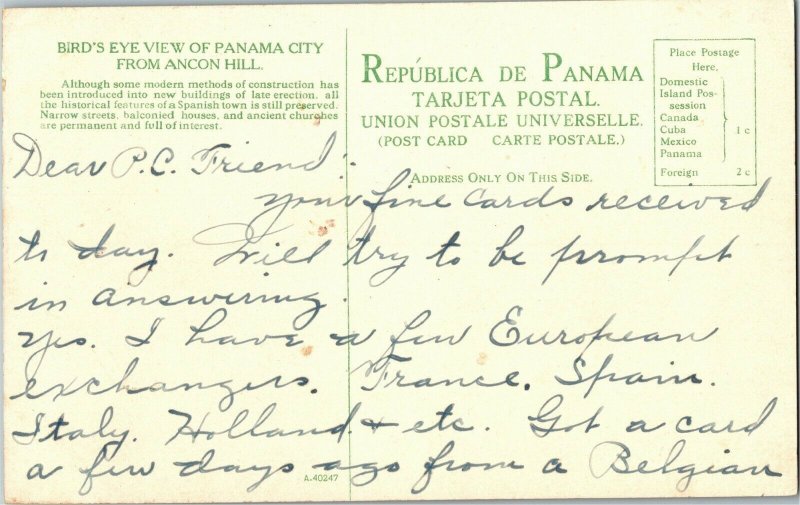 BIRD'S EYE VIEW OF PANAMA CITY
FROM ANCON HILL.
Although some modern methods of construction has
been introduced into new buildings of late erection, all
the historical features of a Spanish town is still preserved.
Narrow streets, balconied houses, and ancient churches
are permanent and full of interest.
REPÚBLICA DE PANAMA
TARJETA POSTAL.
UNION POSTALE UNIVERSELLE.
(POST CARD CARTE POSTALE.)
ADDRESS ONLY ON THIS SIDE.
Place Postage
Here.
Domestic
Island Pos-
session
Canada
Cuba
Mexico
Panama
1 c
Foreign 2 c
Dear P.C. Friend:-
your fine cards received
to day. Will try to be prompt
in answering.
Yes. I have a few European
exchangers. France. Spain.
Italy. Holland. + etc. Got a card
a few days ago from a Belgian
A-40247